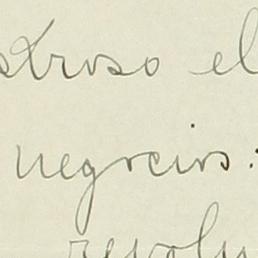 stroso el
negocios:
revolu